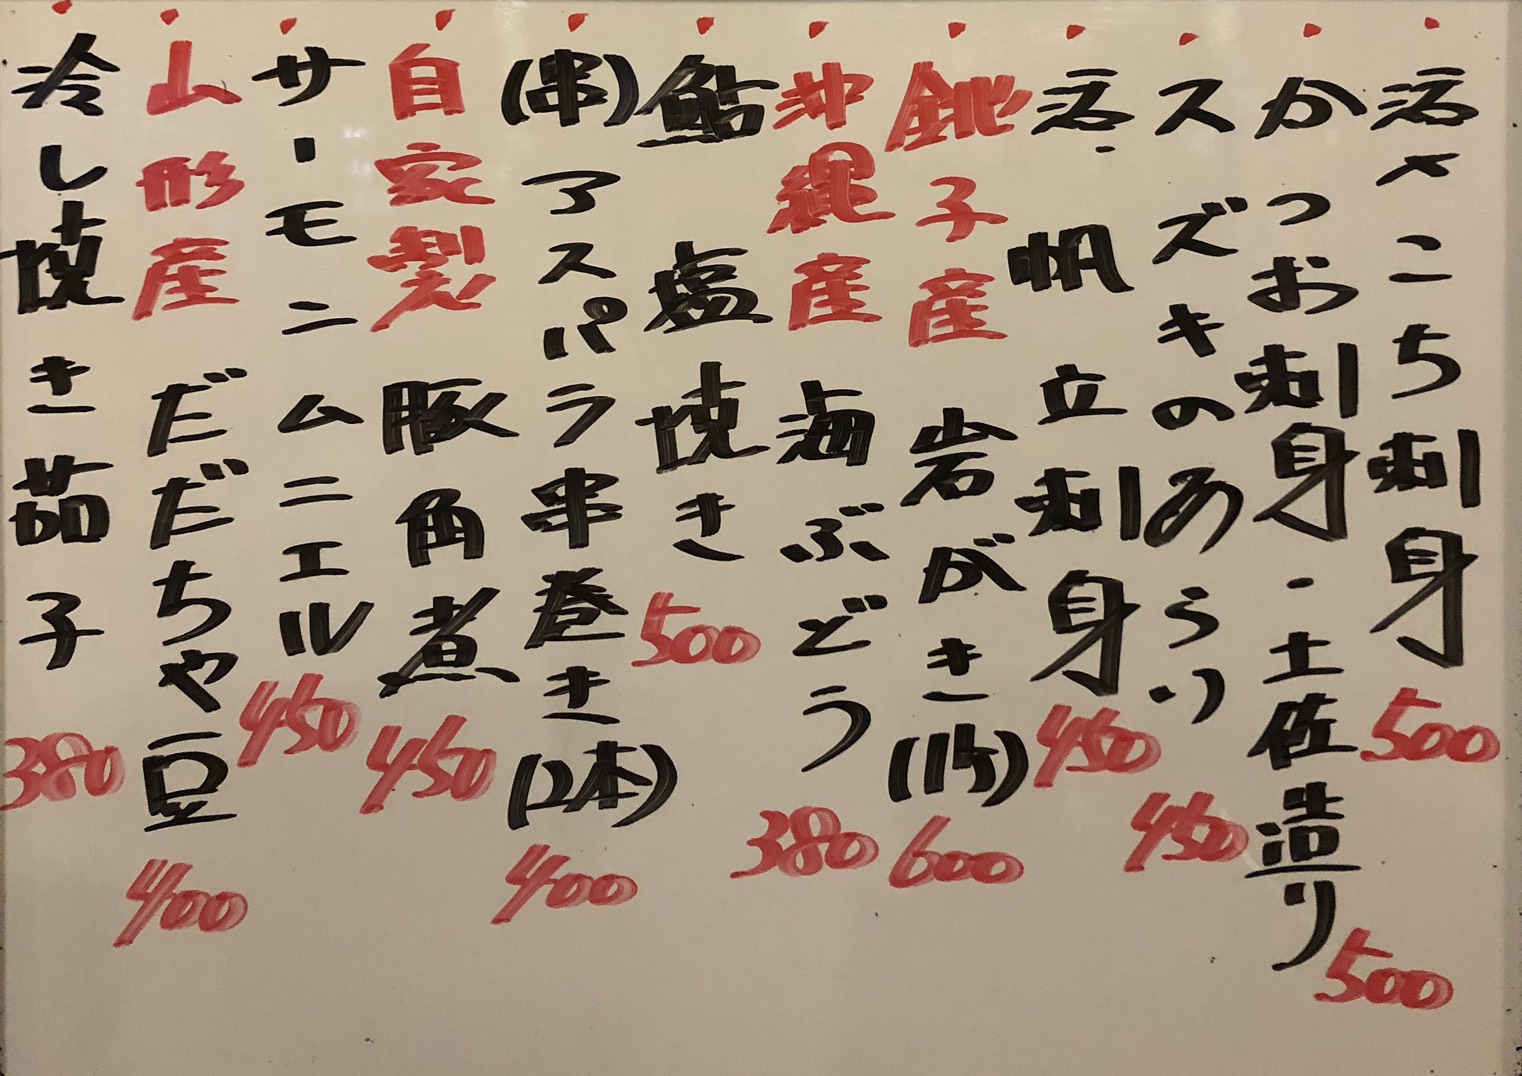 活〆こち刺身 500
かつお刺身・土佐造り 500
スズキのあらい 450
活・帆立刺身 450
銚子産 岩がき(1ケ) 600
沖縄産 海ぶどう 380
鮎 塩焼き 500
(串)アスパラ串巻き(2本) 400
自家製 豚角煮 450
サーモンムニエル 450
山形産 だだちゃ豆 400
冷し焼き茄子 380